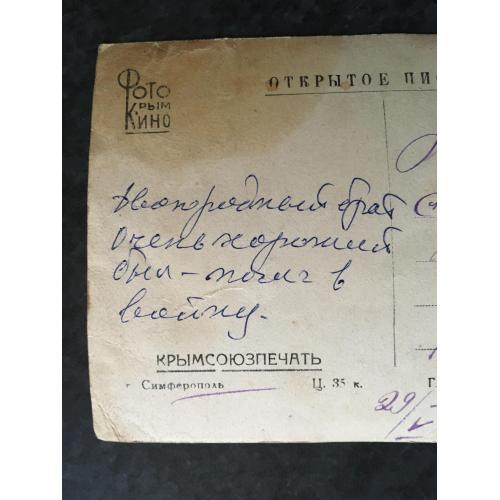 Фото
Крым
Кино
ОТКРЫТОЕ ПИС
Двоюродный брат
очень хороший
был - погиб в
войну.
КРЫМСОЮЗПЕЧАТЬ
г Симферополь
Ц. 35 к.
29/
V